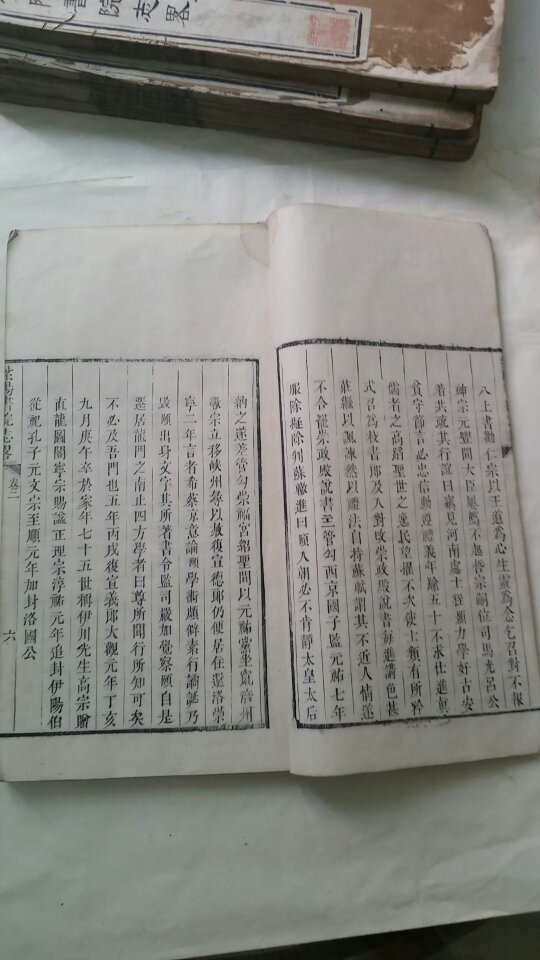 院志畧
八上書勸仁宗以王道爲心生靈爲念乞召對不報
神宗元豐間大臣屢薦不起哲宗嗣位司馬光呂公
著共疏其行誼曰竊見河南處士程頤力學好古安
貧守節言必忠信動遵禮義年踰五十不求仕進眞
儒者之高蹈聖世之逸民望擢不次使士類有所矜
式召爲秘書郎及入對改崇政殿說書每進講色甚
莊繼以諷諫然以禮法自持蘇軾謂其不近人情遂
不合罷崇政殿說書管勾西京國子監元祐七年
服除擬除判蘇轍進曰頤入朝必不肯靜太皇太后
納之遂差管勾崇福宮紹聖間以元祐黨坐竄涪州
徽宗立移峽州尋以赦復宣德郎仍便居住還洛崇
寧二年言者希蔡京意論頤學術頗僻素行譎誕乃
毀頤出身文字其所著書令監司嚴加覺察頤自是
遷居龍門之南止四方學者曰尊所聞行所知可矣
不必及吾門也五年丙戌復宣義郎大觀元年丁亥
九月庚午卒於家年七十五世稱伊川先生高宗贈
直龍圖閣寧宗賜諡正理宗淳祐元年追封伊陽伯
從祀孔子元文宗至順元年加封洛國公
陽書院志畧 卷二 六